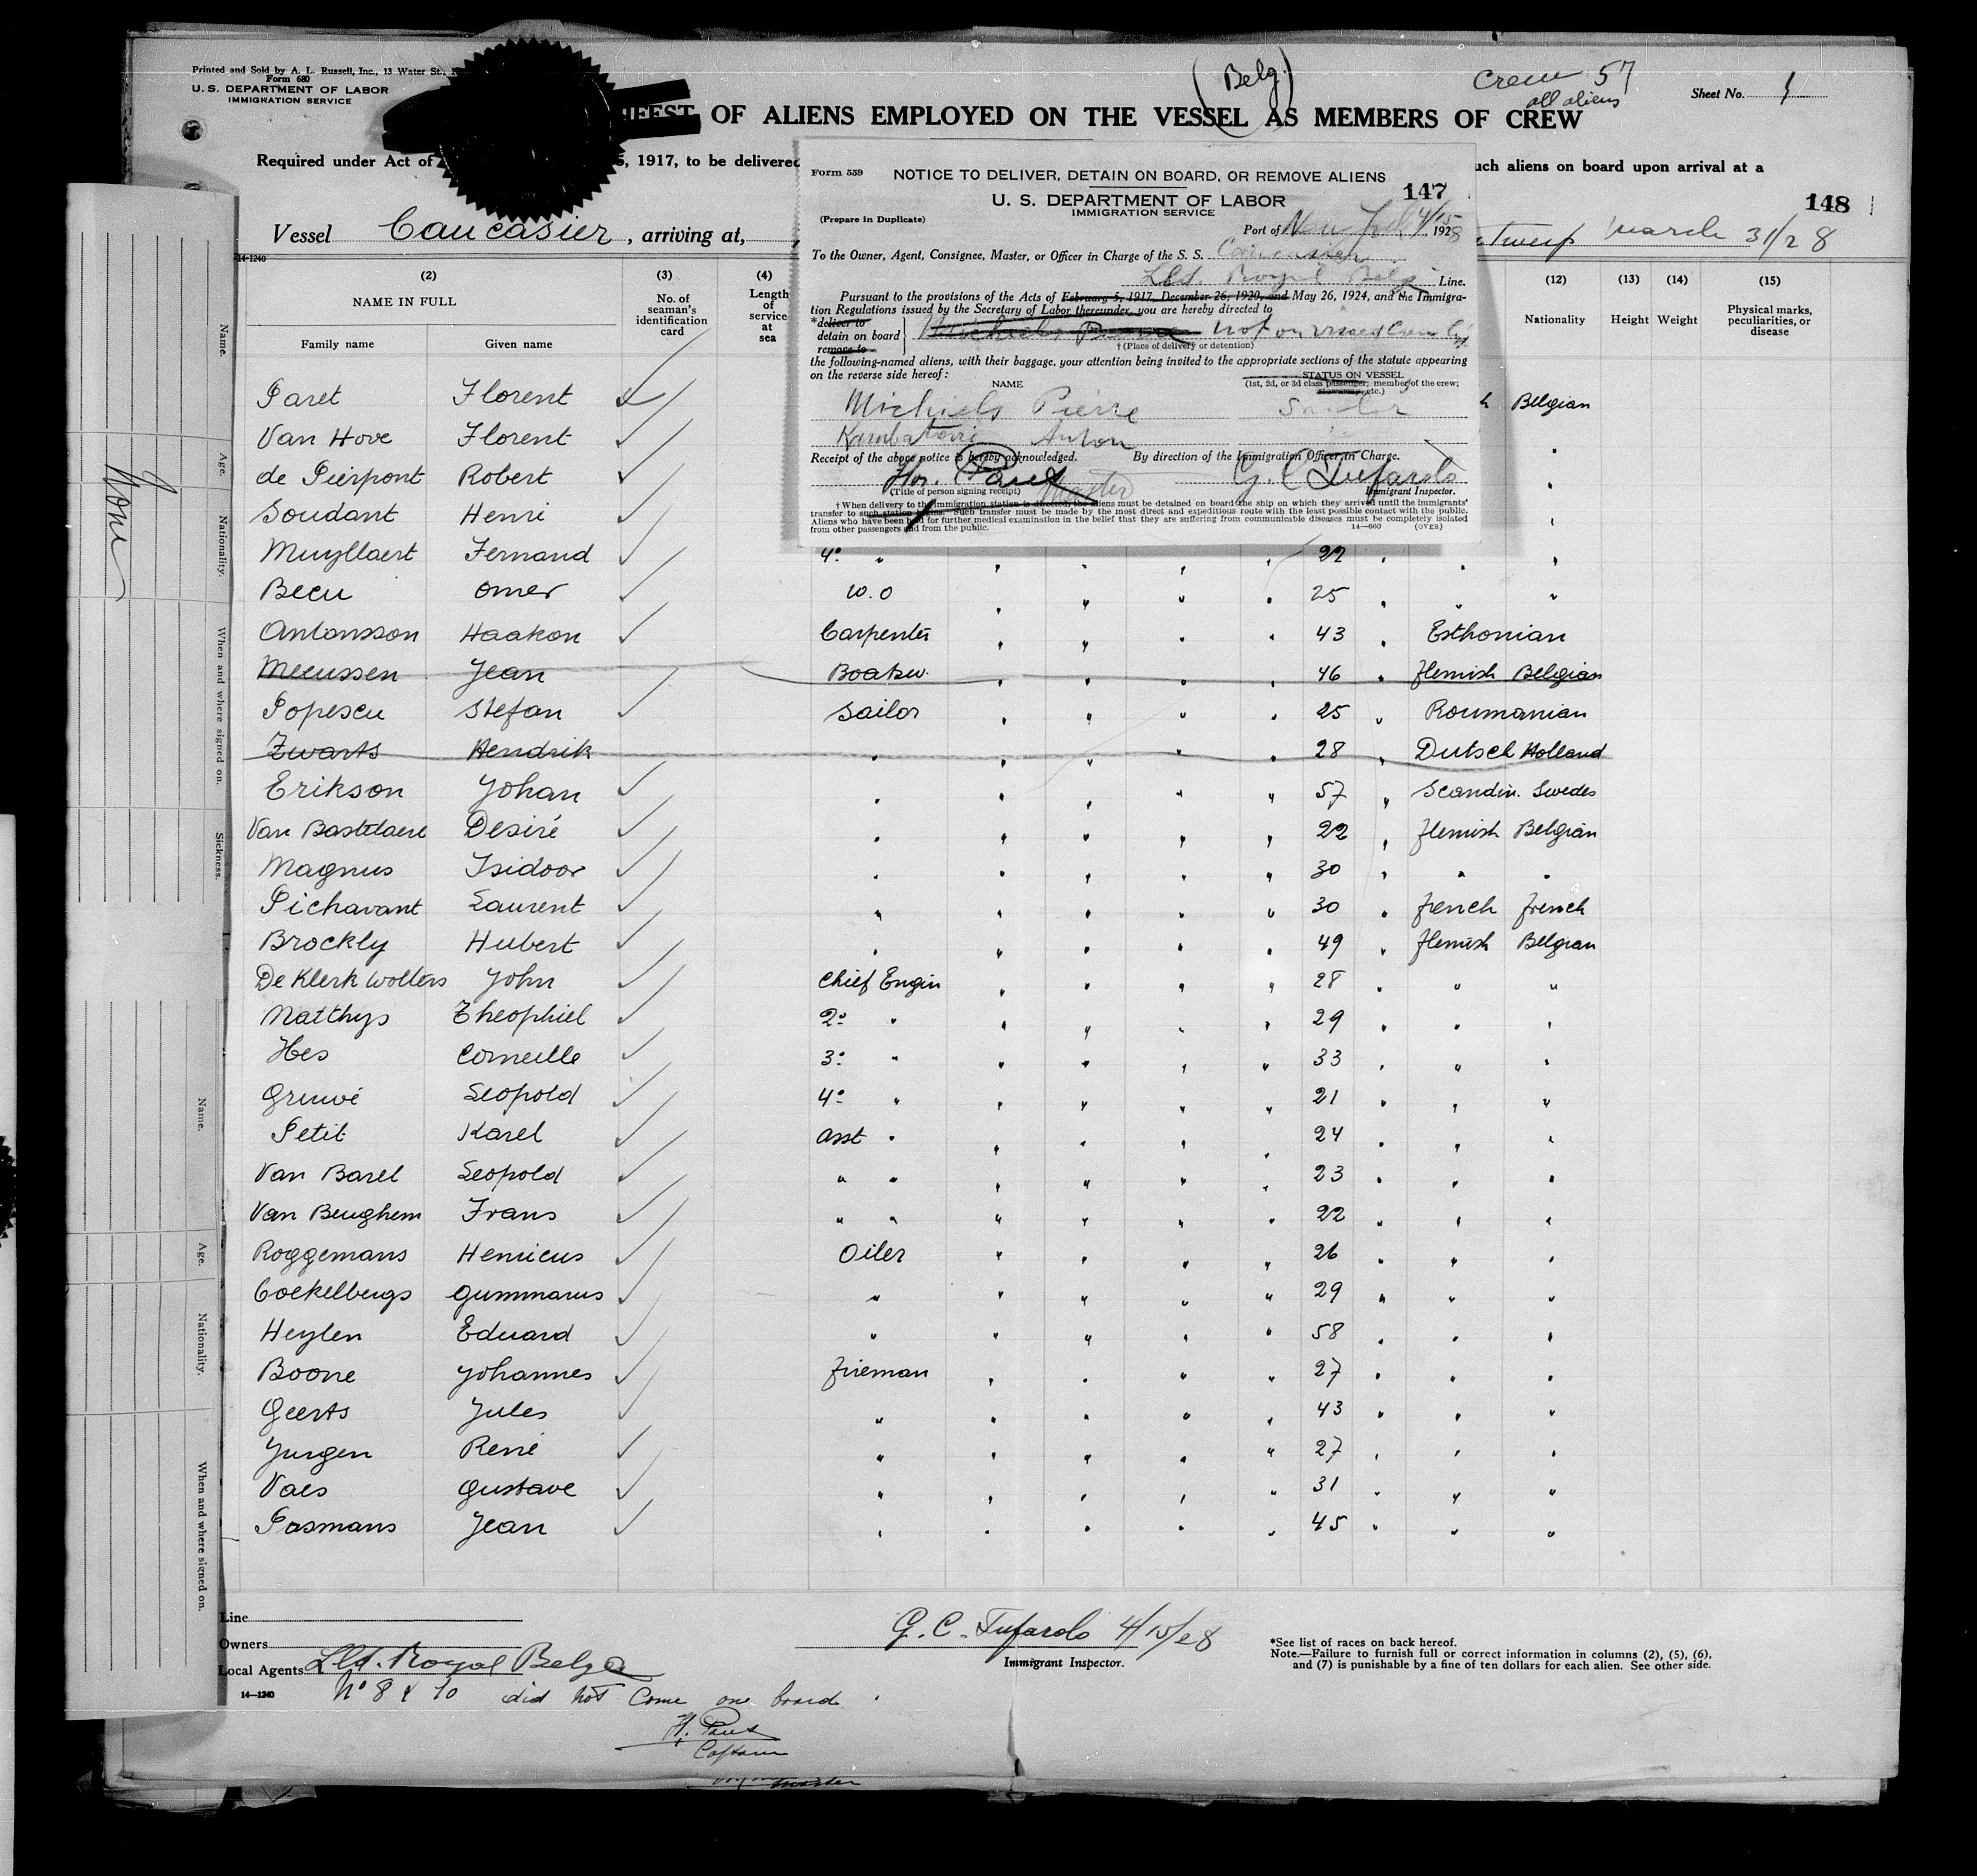 Printed and Sold by A. L. Russell, Inc., 13 Water St.,
Form 680
U. S. DEPARTMENT OF LABOR
IMMIGRATION SERVICE
(Belg.)
Crew 57
all aliens
Sheet No. 1
OF ALIENS EMPLOYED ON THE VESSEL AS MEMBERS OF CREW
Required under Act of 5, 1917, to be delivered such aliens on board upon arrival at a
148
Vessel Caucasier, arriving at, March 31/28
14-1240
Form 559
NOTICE TO DELIVER, DETAIN ON BOARD, OR REMOVE ALIENS
147
U. S. DEPARTMENT OF LABOR
IMMIGRATION SERVICE
(Prepare in Duplicate)
Port of New York 4/15 1928
To the Owner, Agent, Consignee, Master, or Officer in Charge of the S. S. Caucasier
Lld. Royal Belge Line.
Pursuant to the provisions of the Acts of February 5, 1917, December 26, 1920, and May 26, 1924, and the Immigra-
tion Regulations issued by the Secretary of Labor thereunder, you are hereby directed to
*deliver to
detain on board
remove to
not on visaed Crew list
†(Place of delivery or detention)
the following-named aliens, with their baggage, your attention being invited to the appropriate sections of the statute appearing
on the reverse side hereof:
NAME
STATUS ON VESSEL
(1st, 2d, or 3d class passenger; member of the crew;
stowaway, etc.)
Michiels Pierre Sailor
Anton
Receipt of the above notice is hereby acknowledged. By direction of the Immigration Officer in Charge.
Flor. Paret Master G. C. Tufarolo
(Title of person signing receipt) Immigrant Inspector.
†When delivery to the immigration station is directed, the aliens must be detained on board the ship on which they arrived until the immigrants'
transfer to such station begins. Such transfer must be made by the most direct and expeditious route with the least possible contact with the public.
Aliens who have been held for further medical examination in the belief that they are suffering from communicable diseases must be completely isolated
from other passengers and from the public.
14—660 (OVER)
(2) (3) (4) (12) (13) (14) (15)
NAME IN FULL
Family name Given name
No. of seaman's identification card
Length of service at sea
Nationality Height Weight
Physical marks, peculiarities, or disease
Paret Florent Belgian
Van Hove Florent
de Pierpont Robert "
Soudant Henri "
Muyllaert Fernand 4° " " " " " 22 " " "
Becu Omer W.O " " " " 25 " " "
Antonsson Haakon Carpenter " " " " 43 " Esthonian
Meeussen Jean Boatsw. " " " " 46 " flemish Belgian
Popescu Stefan Sailor " " " " 25 " Roumanian
Zwarts Hendrik " " " " 28 " Dutsch Holland
Erikson Johan " " " " " 57 " Scandin. Swedes
Van Bastelaere Desiré " " " " " 22 " flemish Belgian
Magnus Isidoor " " " " " 30 " " "
Pichavant Laurent " " " " " 30 " french french
Brockly Hubert " " " " " 49 " flemish Belgian
De Klerk Wolters John Chief Engin " " " " 28 " " "
Matthys Theophiel 2° " " " " " 29 " " "
Hes Corneille 3° " " " " " 33 " " "
Gruwé Leopold 4° " " " " " 21 " " "
Petit Karel Asst " " " " " 24 " " "
Van Barel Leopold " " " " " " 23 " " "
Van Beughem Frans " " " " " " 22 " " "
Roggemans Henricus Oiler " " " " 26 " " "
Coekelbergs Gummarus " " " " " 29 " " "
Heylen Eduard " " " " " 58 " " "
Boone Johannes fireman " " " " 27 " " "
Geerts Jules " " " " " 43 " " "
Jurgen René " " " " " 27 " " "
Vaes Gustave " " " " " 31 " " "
Pasmans Jean " " " " " 45 " " "
Line
Owners
Local Agents Lld. Royal Belge
14—1240
G. C. Tufarolo 4/15/28
Immigrant Inspector.
*See list of races on back hereof.
Note.—Failure to furnish full or correct information in columns (2), (5), (6),
and (7) is punishable by a fine of ten dollars for each alien. See other side.
N° 8 & 10 did not come one board.
Captain
Master
Name.
Age.
Nationality.
When and where signed on.
Sickness.
None
Name.
Age.
Nationality.
When and where signed on.